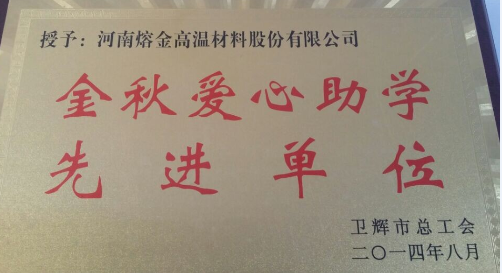 授予：河南熔金高温材料股份有限公司
金秋爱心助学
先进单位
卫辉市总工会
二〇一四年八月